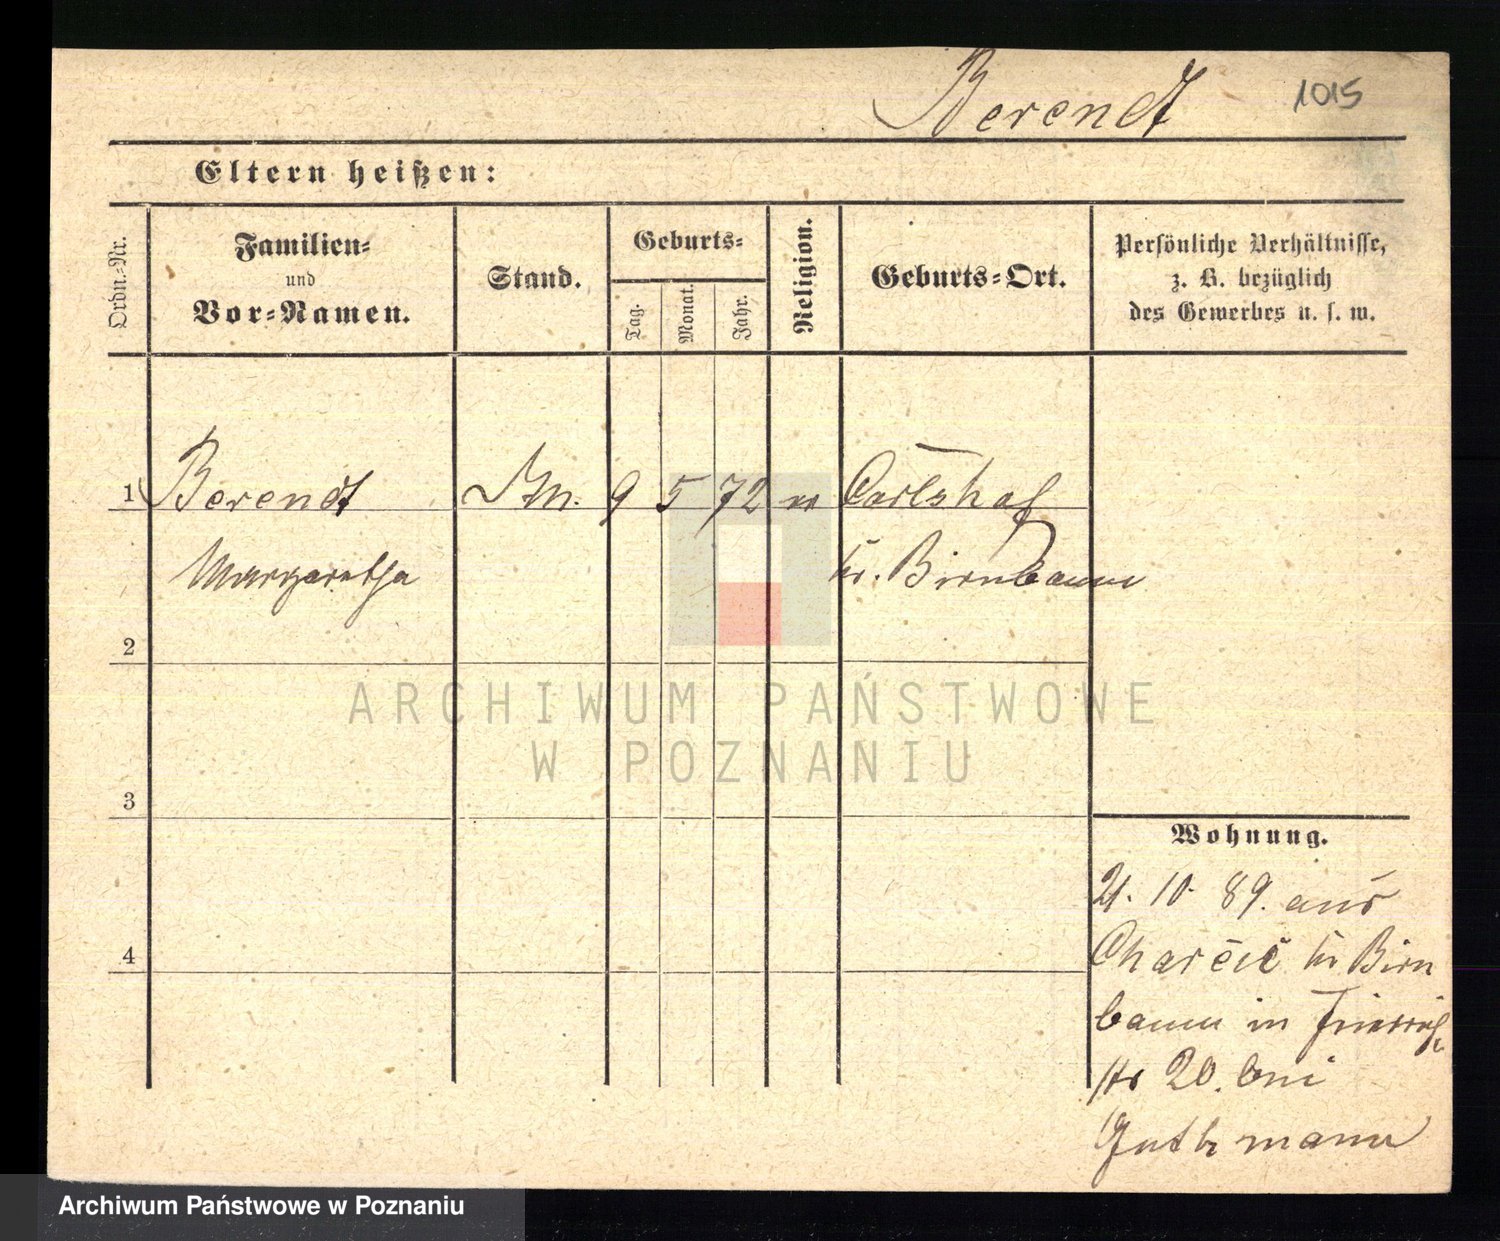 Berendt 1015
Eltern heißen:
Ordn.=Nr.
Familien=
und
Vor=Namen.
Stand.
Geburts=
Tag.
Monat.
Jahr.
Religion.
Geburts=Ort.
Persönliche Verhältnisse,
z. B. bezüglich
des Gewerbes u. s. w.
1 Berendt 9 5 72 Carlshof
Margaretha Kr. Birnbaum
2
ARCHIWUM PAŃSTWOWE
W POZNANIU
3
Wohnung.
21. 10. 89. aus
Charcic Kr Birn
4
baum in Friedrich
str 20. bei
Guthmann
Archiwum Państwowe w Poznaniu